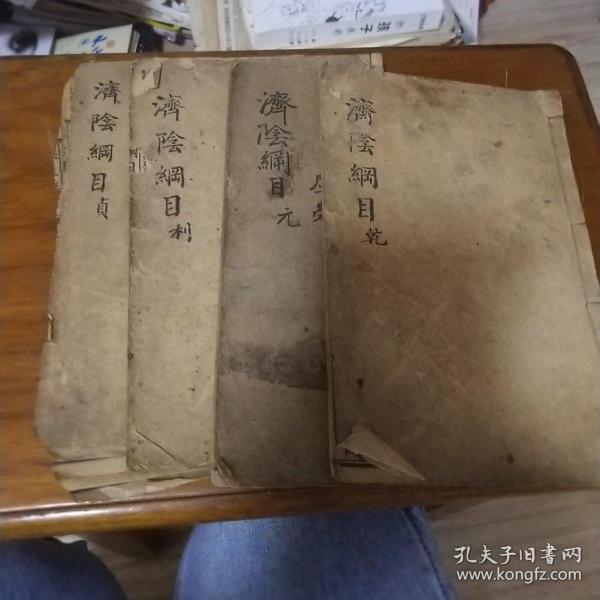 濟陰綱目乾
濟陰綱目元
濟陰綱目利
濟陰綱目貞
孔夫子旧书网
www.kongfz.com